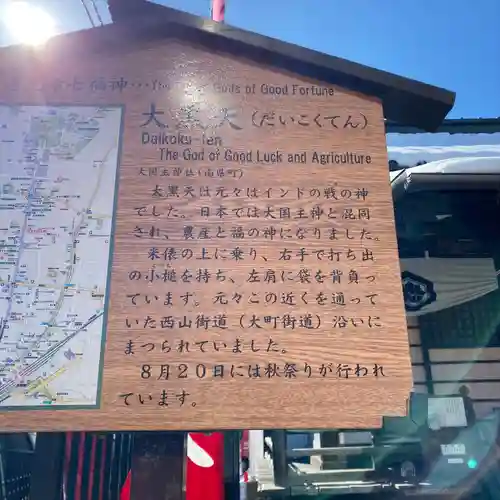 七福神…The
Gods of Good Fortune
大黒天(だいこくてん)
Daikoku-Ten
The God of Good Luck and Agriculture
大国主神社(南県町)
大黒天は元々はインドの戦の神
でした。日本では大国主神と混同
され、農産と福の神になりました。
米俵の上に乗り、右手で打ち出
の小槌を持ち、左肩に袋を背負っ
ています。元々この近くを通って
いた西山街道(大町街道)沿いに
まつられていました。
8月20日には秋祭りが行われ
ています。